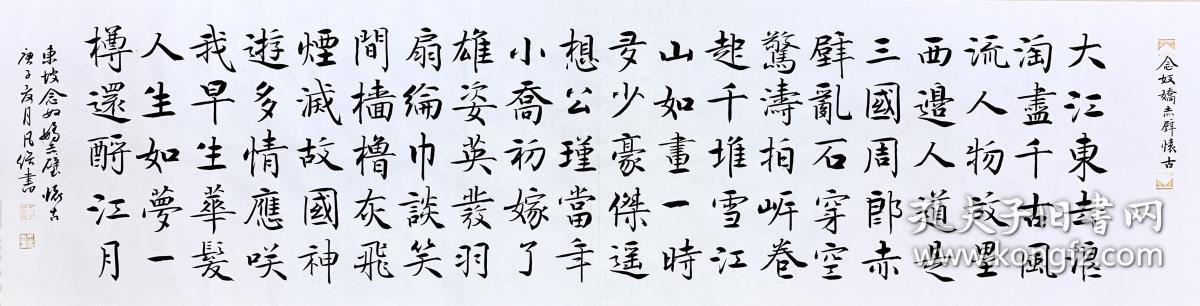 念奴嬌赤壁懷古
大江東去浪
淘盡千古風
流人物故壘
西邊人道是
三國周郎赤
壁亂石穿空
驚濤拍岍卷
起千堆雪江
山如畫一時
多少豪傑遥
想公瑾當年
小喬初嫁了
雄姿英發羽
扇綸巾談笑
間檣櫓灰飛
煙滅故國神
遊多情應咲
我早生華髮
人生如夢一
樽還酹江月
東坡念奴嬌赤壁懷古
庚子夏月凡書
孔夫子旧书网
www.kongfz.com